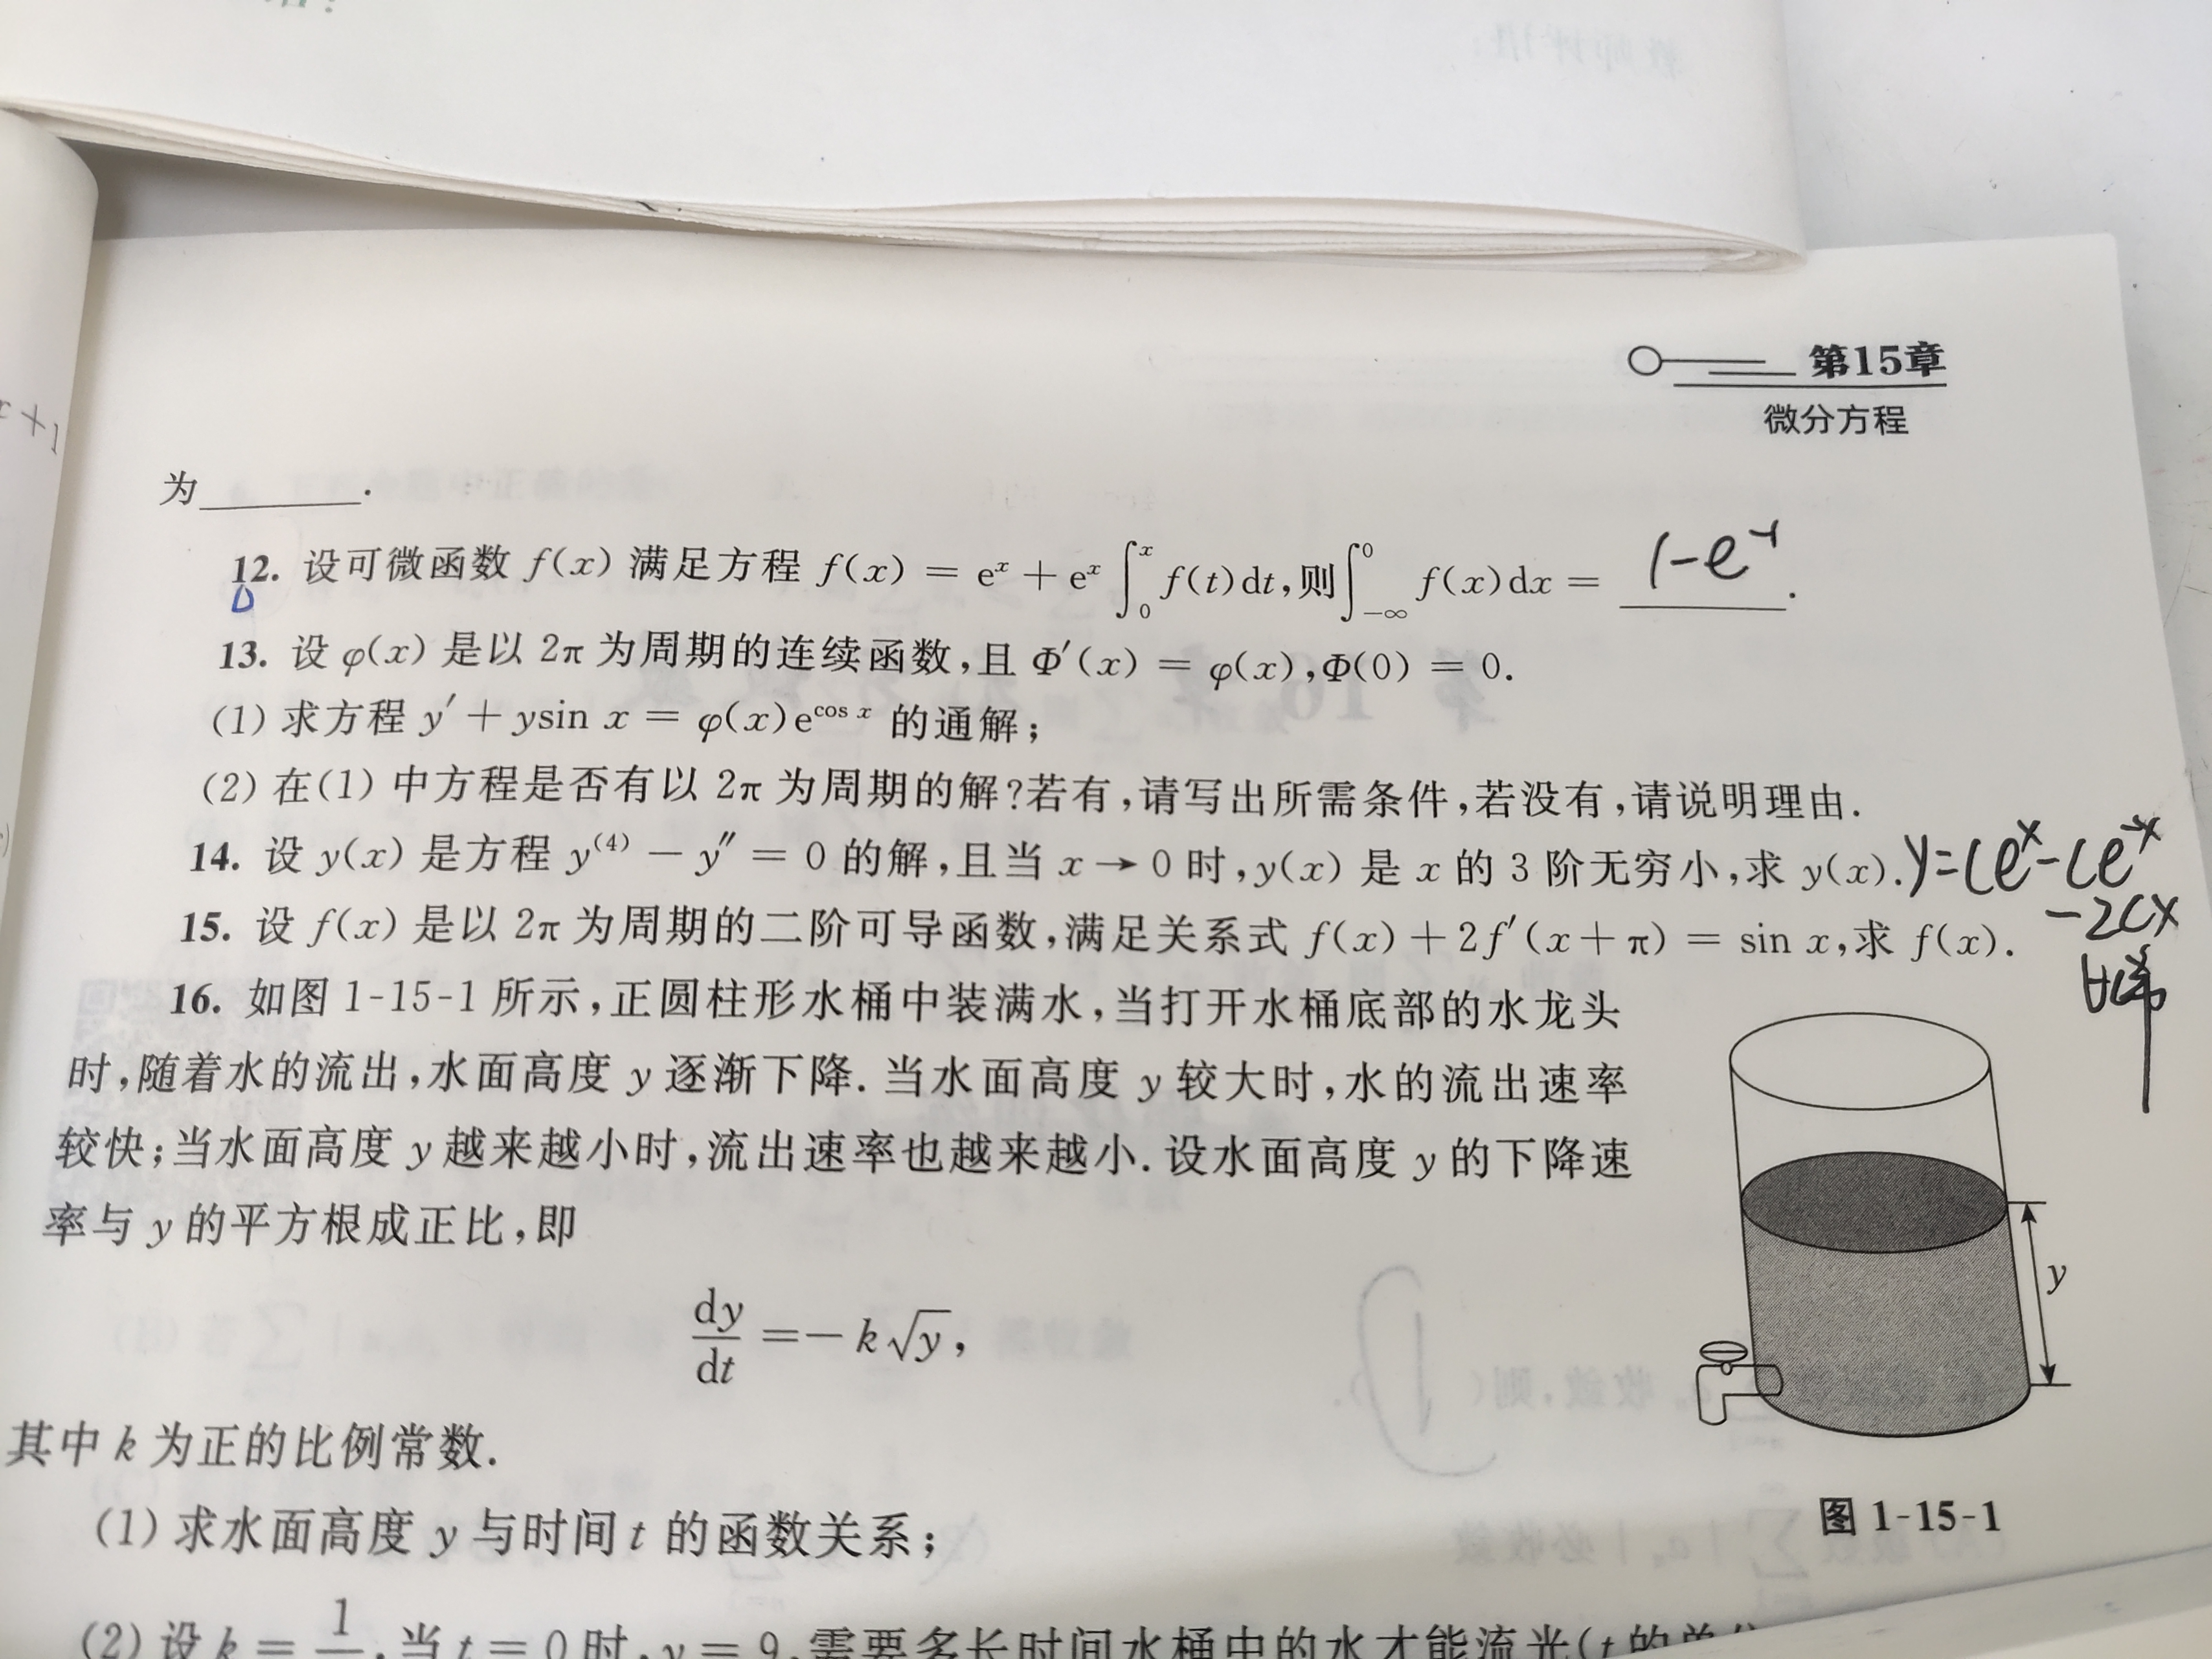 x+1
第15章
微分方程
为________.
12. 设可微函数 f(x) 满足方程 f(x) = eˣ + eˣ ∫₀ˣ f(t)dt,则∫₋∞⁰ f(x)dx = 1-e⁻¹.
13. 设 φ(x) 是以 2π 为周期的连续函数,且 Φ′(x) = φ(x),Φ(0) = 0.
(1) 求方程 y′ + ysin x = φ(x)e^{cos x} 的通解;
(2) 在(1) 中方程是否有以 2π 为周期的解?若有,请写出所需条件,若没有,请说明理由.
14. 设 y(x) 是方程 y⁽⁴⁾ − y″ = 0 的解,且当 x → 0 时,y(x) 是 x 的 3 阶无穷小,求 y(x). y=Ceˣ-Ce⁻ˣ
-2Cx
15. 设 f(x) 是以 2π 为周期的二阶可导函数,满足关系式 f(x) + 2f′(x + π) = sin x,求 f(x).
16. 如图 1-15-1 所示,正圆柱形水桶中装满水,当打开水桶底部的水龙头
时,随着水的流出,水面高度 y 逐渐下降. 当水面高度 y 较大时,水的流出速率
较快;当水面高度 y 越来越小时,流出速率也越来越小. 设水面高度 y 的下降速
率与 y 的平方根成正比,即
dy/dt = − k√y,
y
其中 k 为正的比例常数.
图 1-15-1
(1) 求水面高度 y 与时间 t 的函数关系;
(2) 设 k = 1 ,当 t = 0 时,y = 9,需要多长时间水桶中的水才能流光(t 的单位